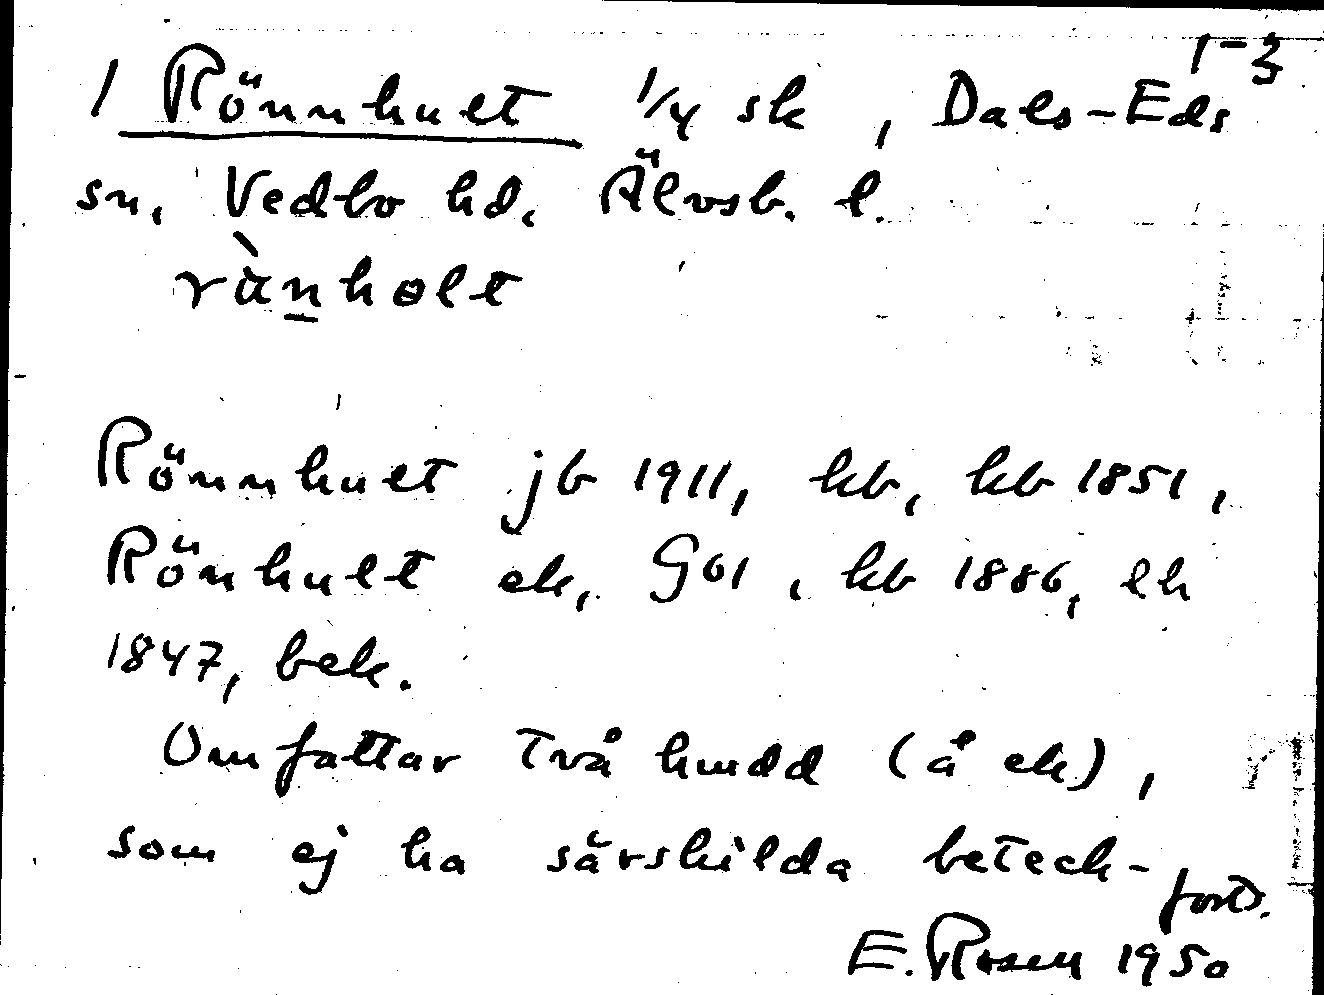 1-3
1 Rönnhult 1/4 sk, Dals-Eds
sn, Vedbo hd, Älvsb. l.
rànholt
Rönnhult jb 1911, kb, hb 1851,
Rönhult ek, GS1, hb 1886, lh
1847, bek.
Omfattar två hmdd (å ek),
som ej ha särskilda beteck-
forts.
E. Rosen 1950